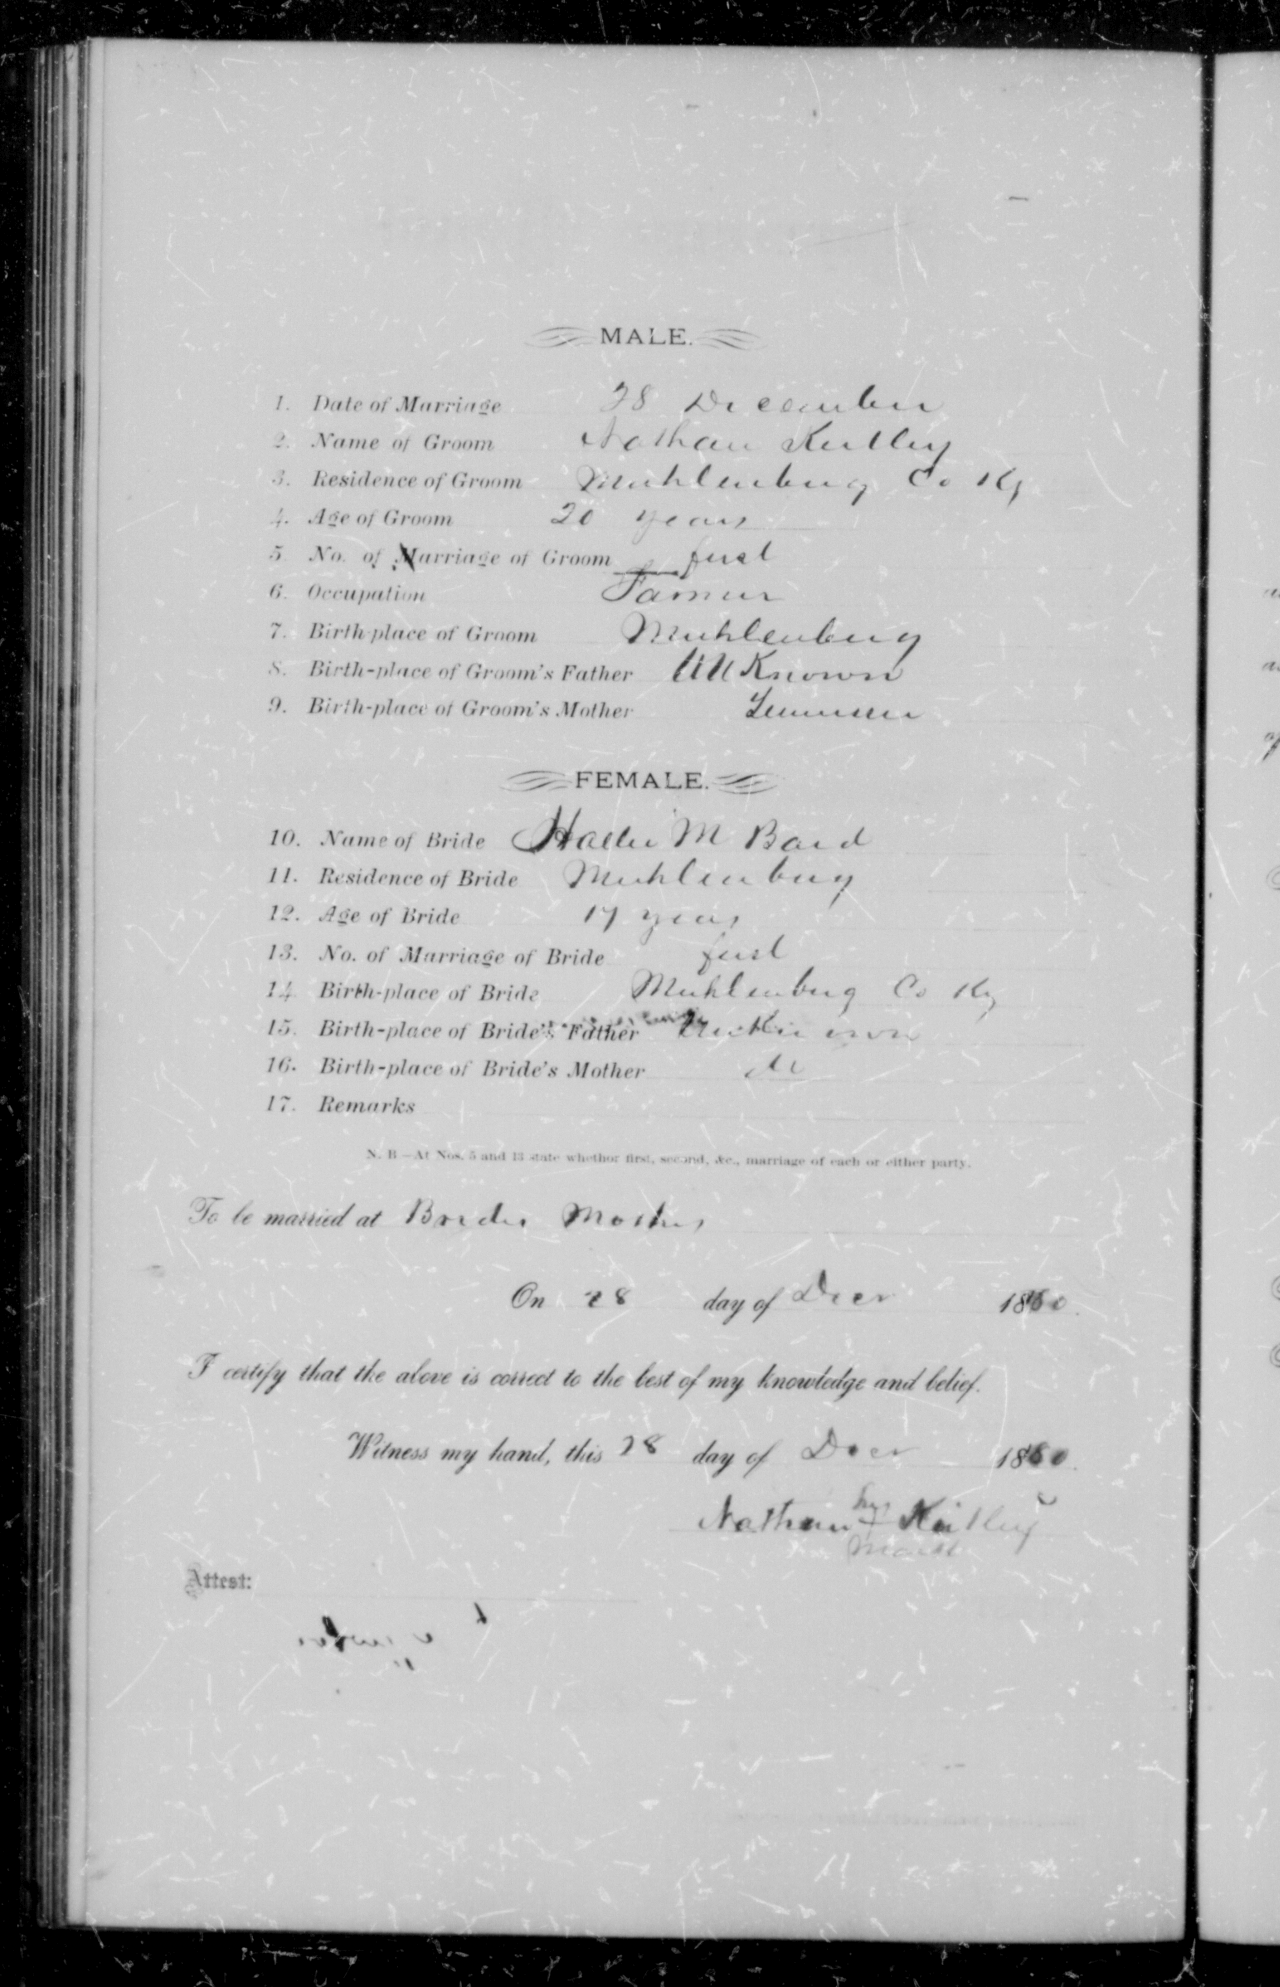 MALE.
1. Date of Marriage 28 December
2. Name of Groom Nathan Kutley
3. Residence of Groom Muhlenburg Co Ky
4. Age of Groom 20 years
5. No. of Marriage of Groom first
6. Occupation Farmer
7. Birth-place of Groom Muhlenburg
8. Birth-place of Groom's Father UnKnown
9. Birth-place of Groom's Mother Tennessee
FEMALE.
10. Name of Bride M Bard
11. Residence of Bride Muhlenburg
12. Age of Bride 17 years
13. No. of Marriage of Bride first
14. Birth-place of Bride Muhlenburg Co Ky
15. Birth-place of Bride's Father Unknown
16. Birth-place of Bride's Mother
17. Remarks
N. B—At Nos. 5 and 13 state whether first, second, &c., marriage of each or either party.
To be married at Brides Mothers
On 28 day of Decr 18
I certify that the above is correct to the best of my knowledge and belief.
Witness my hand, this 28 day of Decr 18
his
Nathan + Kutley
mark
Attest: